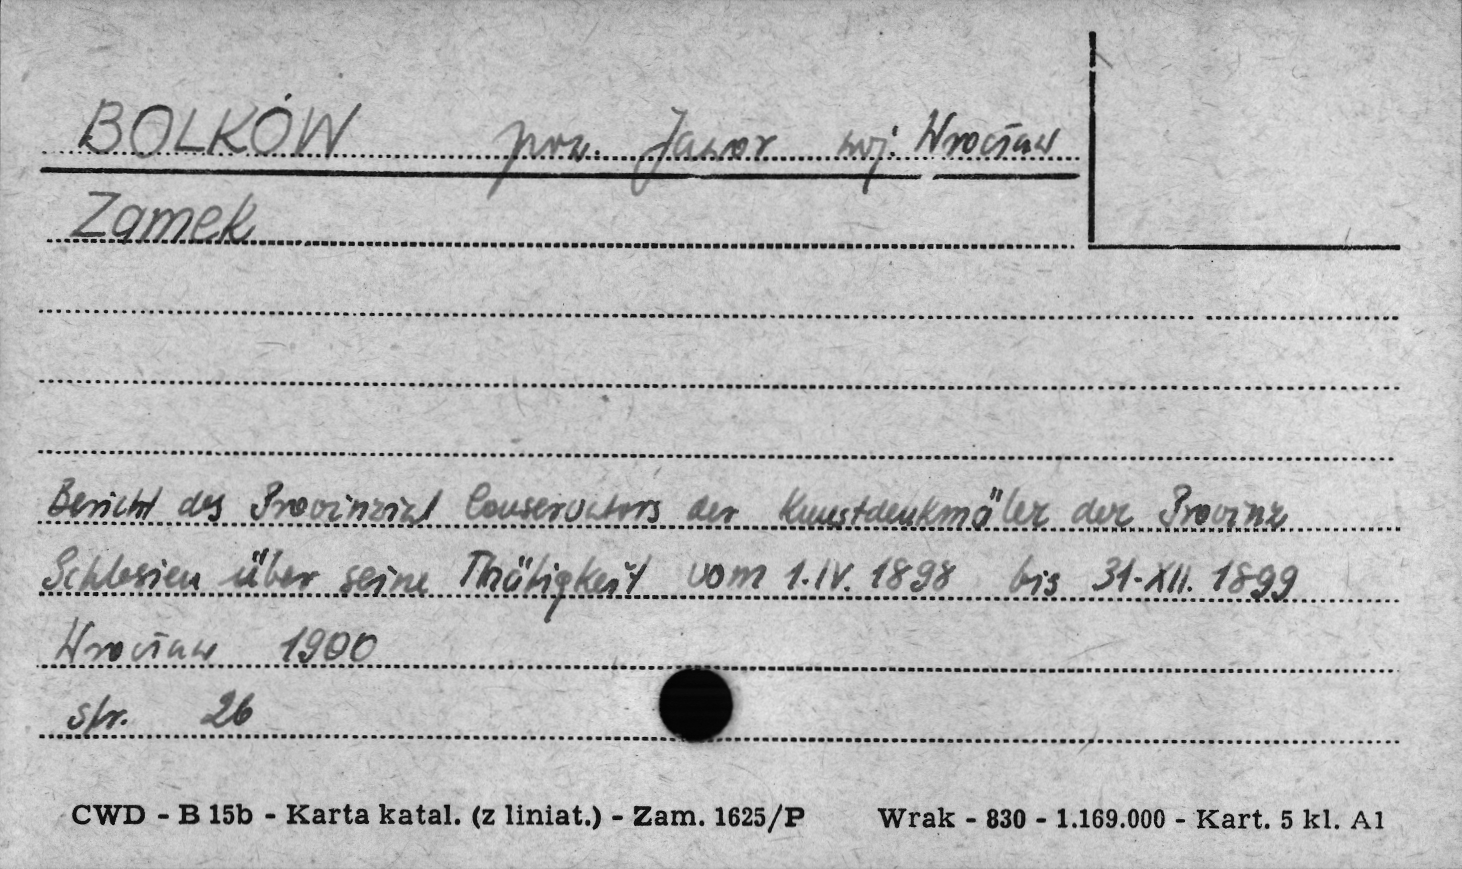 BOLKÓW pow. Jawor woj. Wrocław
Zamek
Bericht des Provinzial Conservators der Kunstdenkmäler der Provinz
Schlesien über seine Thätigkeit vom 1.IV. 1898 bis 31-XII. 1899
Wrocław 1900
str. 26
CWD - B 15b - Karta katal. (z liniat.) - Zam. 1625/P Wrak - 830 - 1.169.000 - Kart. 5 kl. A1